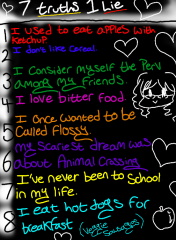 7 truths 1 Lie
1 I used to eat apples with
Ketchup
2 I dont like Cereal
3 I Consider myself the Perv
among my friends.
4 I love bitter food
5 I Once wanted to be
Called Flossy.
6 my scariest dream was
about Animal Crossing
7 I've never been to School
in my life.
8 I eat hot dogs for
breakfast (veggie
Sausages)